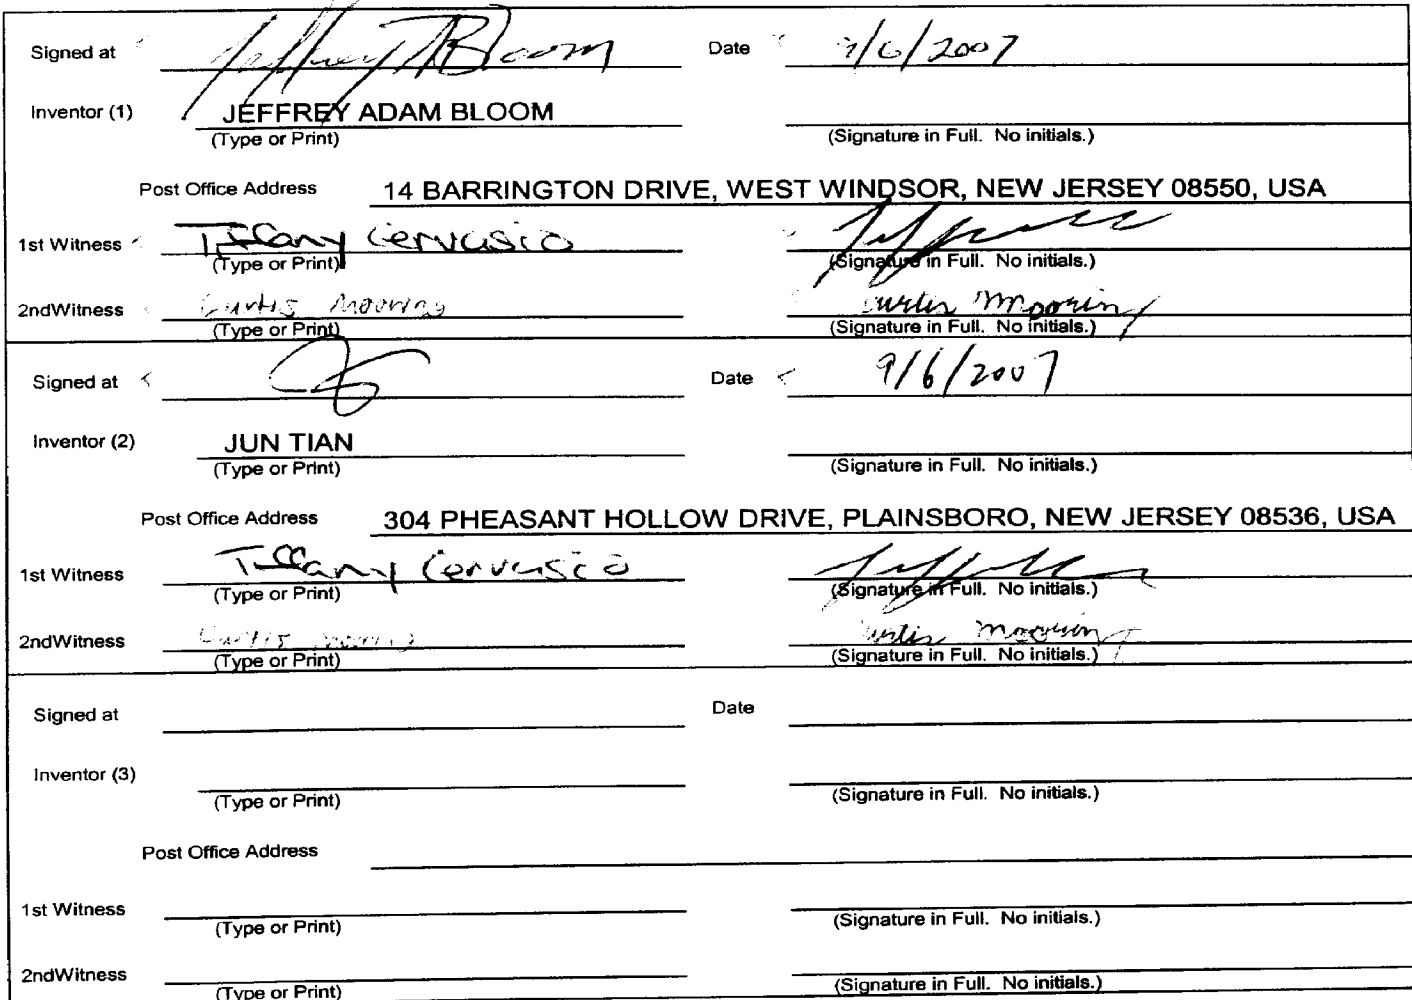 Signed at Jeffrey A Bloom Date 9/6/2007
Inventor (1) JEFFREY ADAM BLOOM
(Type or Print) (Signature in Full. No initials.)
Post Office Address 14 BARRINGTON DRIVE, WEST WINDSOR, NEW JERSEY 08550, USA
1st Witness Tiffany Cervasio
(Type or Print) (Signature in Full. No initials.)
2ndWitness Curtis Curtis
(Type or Print) (Signature in Full. No initials.)
Signed at Date 9/6/2007
Inventor (2) JUN TIAN
(Type or Print) (Signature in Full. No initials.)
Post Office Address 304 PHEASANT HOLLOW DRIVE, PLAINSBORO, NEW JERSEY 08536, USA
1st Witness Tiffany Cervasio
(Type or Print) (Signature in Full. No initials.)
2ndWitness Curtis Curtis
(Type or Print) (Signature in Full. No initials.)
Signed at Date
Inventor (3)
(Type or Print) (Signature in Full. No initials.)
Post Office Address
1st Witness
(Type or Print) (Signature in Full. No initials.)
2ndWitness
(Type or Print) (Signature in Full. No initials.)